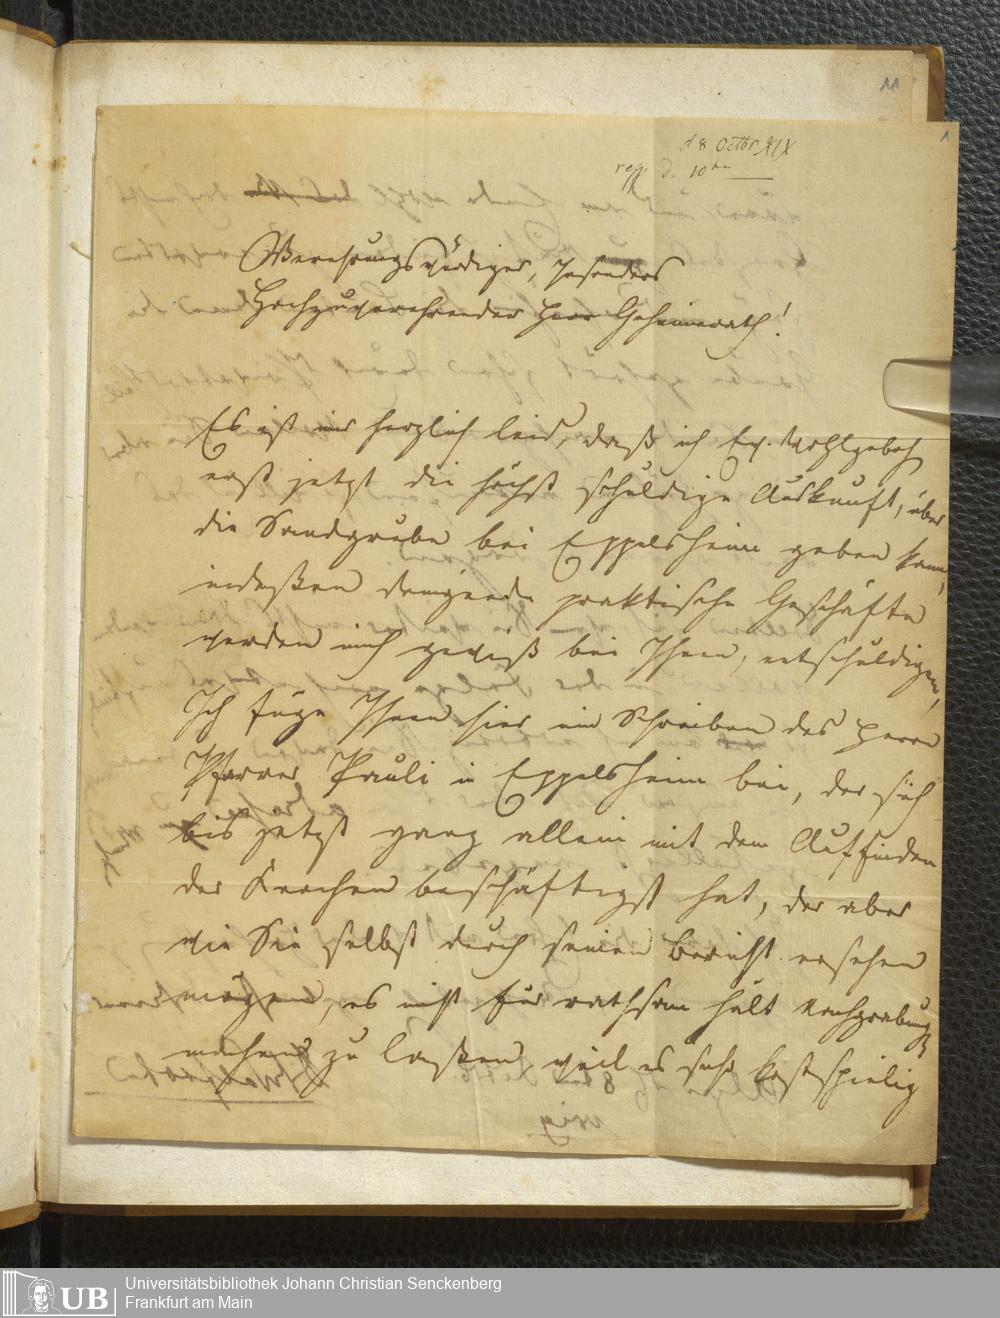 11
1
d 8 Octbr XIX
resp. d. 10
Verehrungswürdiger, besonders
Hochzuverehrender Herr Geheimerath!
Es ist mir herzlich leid, daß ich Ew. Wohlgeboh
erst jetzt die höchst schuldige Auskunft, über
die Sandgrube bei Eppelsheim geben kann,
indeßen dringende praktische Geschäfte
werden mich gewiß bei Ihnen, entschuldigen,
Ich füge Ihnen hier ein Schreiben des Herrn
Pfarrer Pauli in Eppelsheim bei, der sich
bis jetzt ganz allein mit dem Auffinden
der Knochen beschäftigt hat, der aber
wie Sie selbst durch seinen Bericht ersehen
mögen, es nicht für rathsam hält Nachgrabung
machen zu laßen, weil es sehr kostspielig
UB
Universitätsbibliothek Johann Christian Senckenberg
Frankfurt am Main